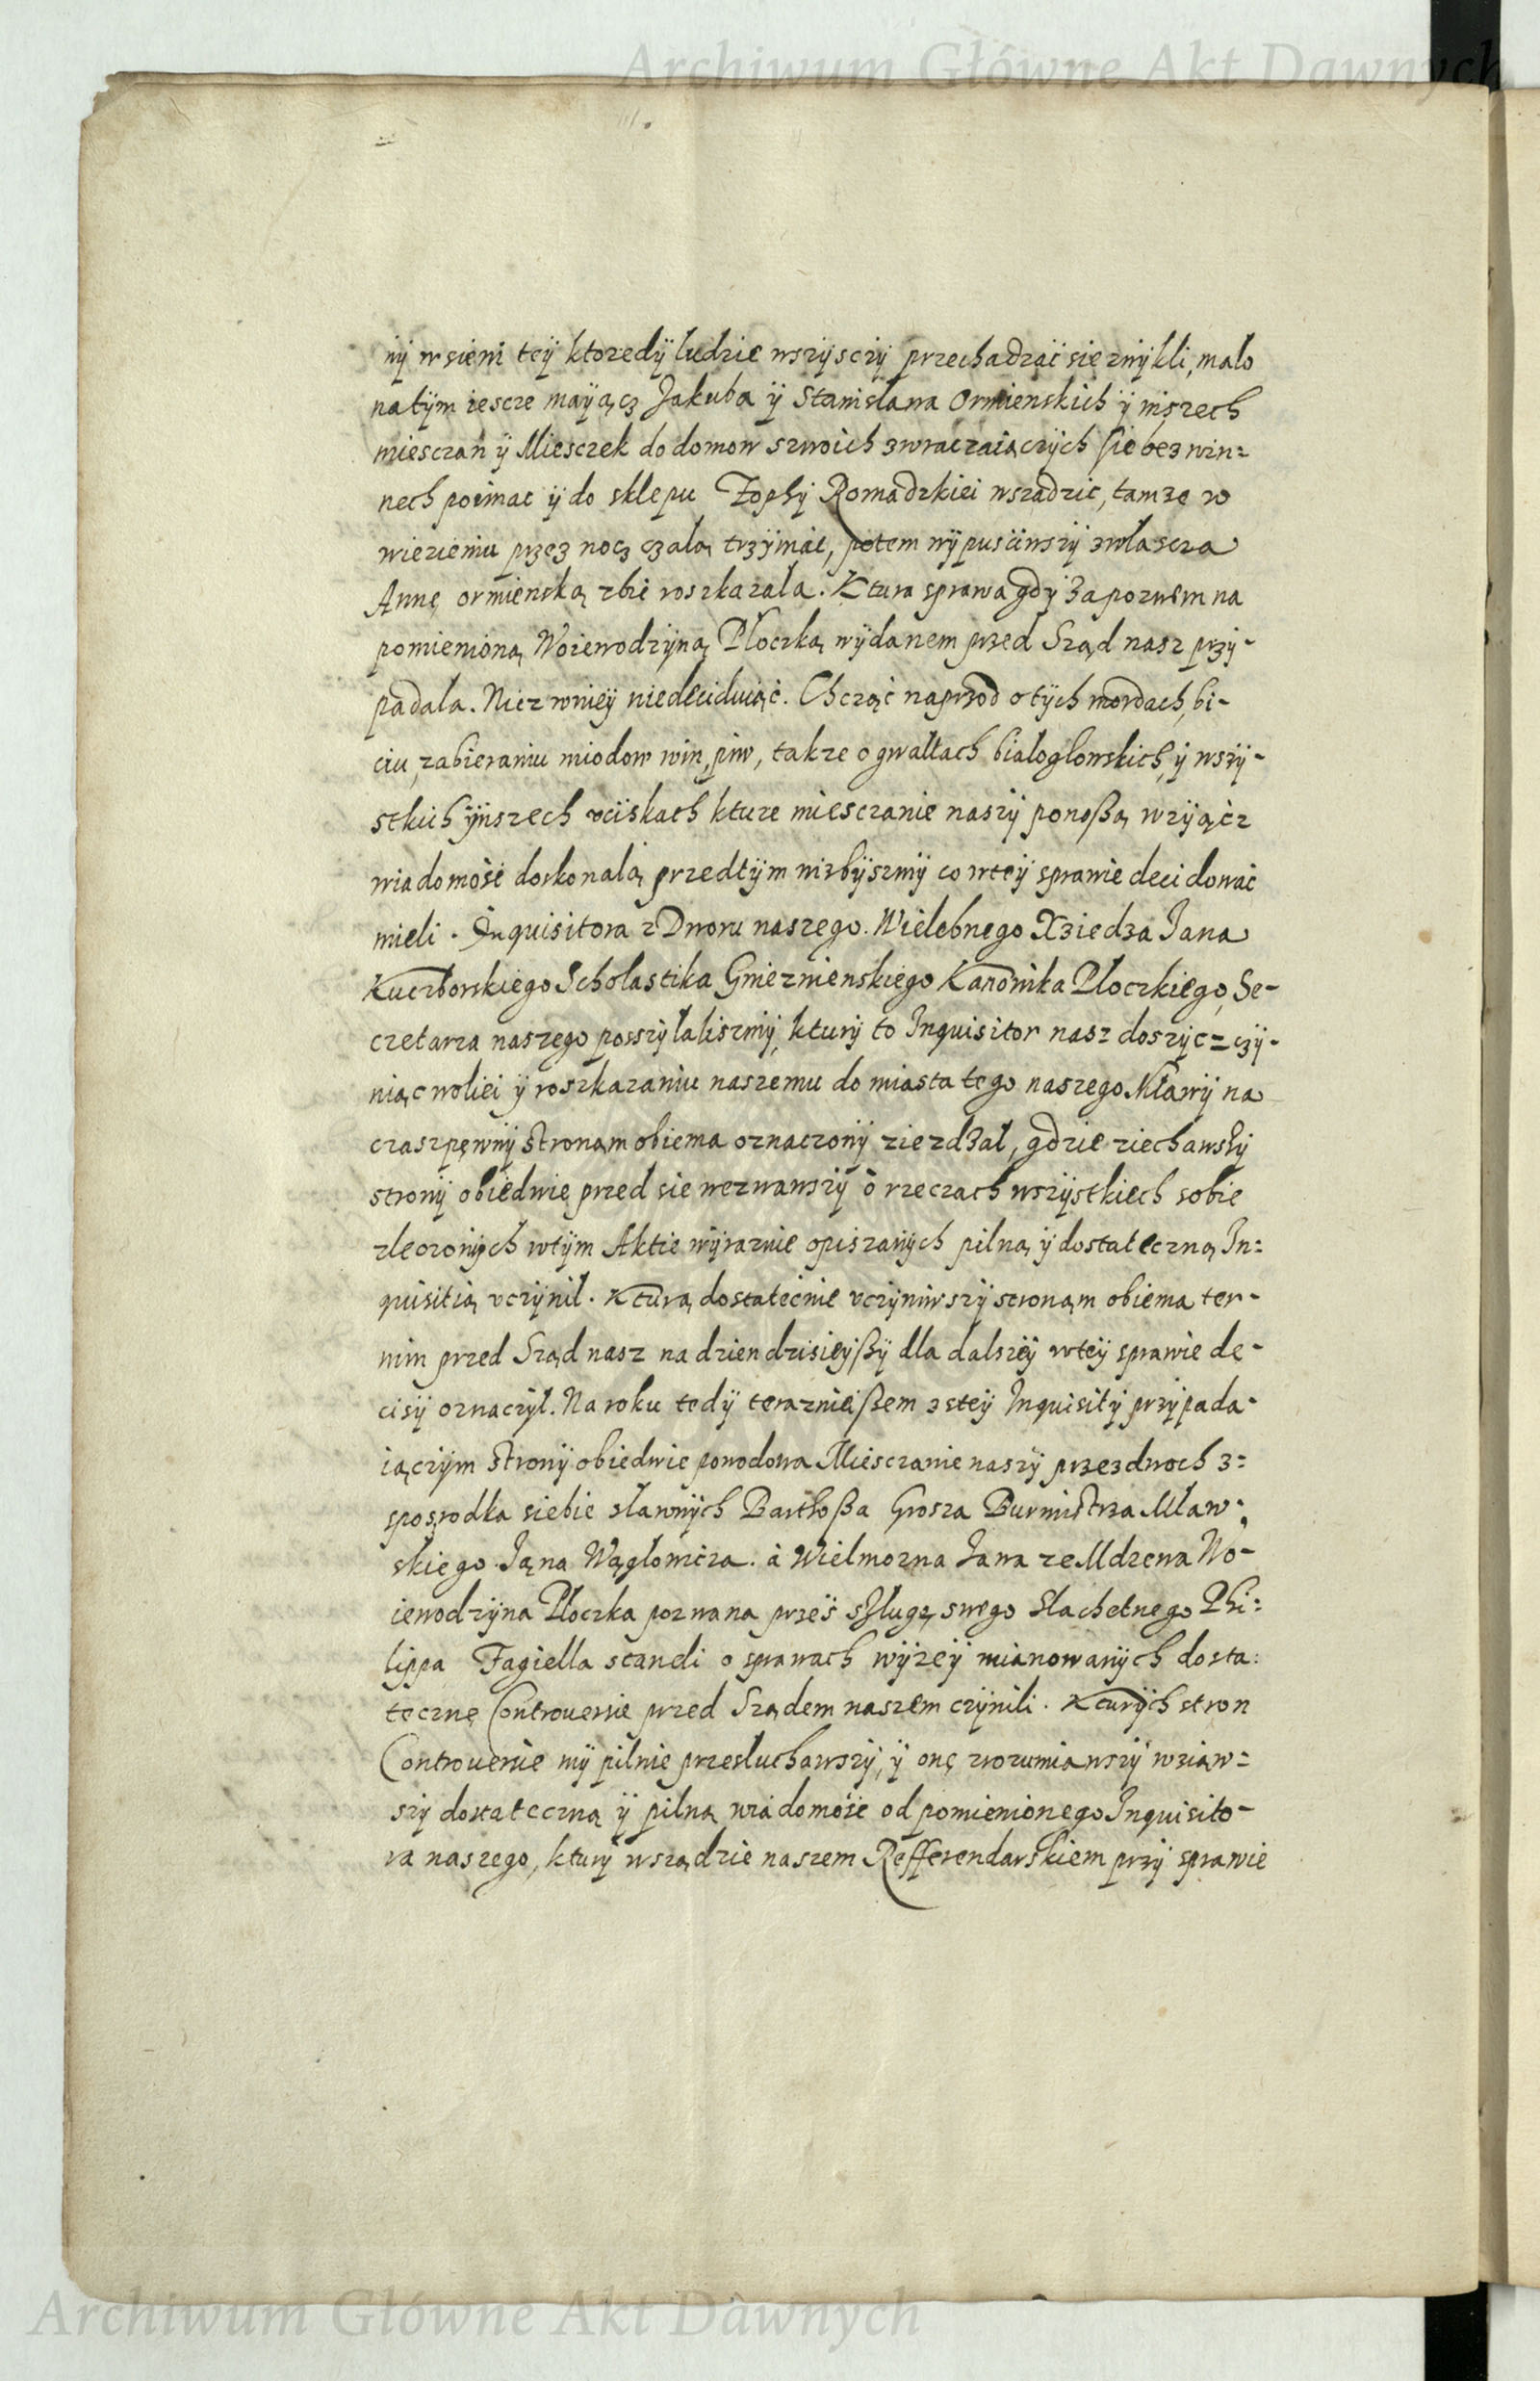 Archiwum Główne Akt Dawnych
nÿ w sieni teÿ ktoredÿ ludzie wszÿsczÿ przechadzać sie zwÿkli, malo
na tÿm iescze maÿącz Jakuba ÿ Stanislawa Ormienskich ÿ inszech
miesczan ÿ Miesczek do domow szwoich zwraczaiączÿch sie bez win=
nech poimac ÿ do sklepu Zophÿ Romadzkiei wsadzic, tamze w
wiezieniu przez nocz czalą trzÿmac, potem wÿpusciwszÿ zwlascza
Annę ormienską zbic roszkazala. Ktura sprawa gdÿ za pozwem na
pomienioną Woiewodzÿną Ploczką wÿdanem przed Sząd nasz przÿ-
padala. Nicz wnieÿ niedeciduiąc. Chcząc naprzod o tÿch mordach, bi-
ciu, zabieraniu miodow win, piw, takze o gwaltach bialoglowskich, ÿ wszÿ-
stkich ÿnszech vciskach kture miesczanie naszÿ ponoßą wzÿącz
wiadomosc doskonalą przedtÿm nizbÿszmÿ co wteÿ sprawie decidowac
mieli. Inquisitora z Dworu naszego. Wielebnego Xziedza Jana
Kuczborskiego Scholastika Gnieznienskiego Kanonika Ploczkiego, Se-
czetarza naszego posszÿlaliszmÿ, kturÿ to Inquisitor nasz doszÿc=czÿ-
niąc woliei ÿ roszkazaniu naszemu do miasta tego naszego Mlawÿ na
czasz pęwnÿ stronąm obiema oznaczonÿ ziezdzal, gdzie ziechawszÿ
stronÿ obiedwie przed sie wezwawszÿ o rzeczach wszÿstkiech sobie
zleczonÿch wtÿm Aktie wÿraznie opiszanÿch pilną ÿ dostateczną In=
quisitią vczÿnil. Kturą dostatecnie vczÿniwszÿ stronąm obiema ter-
min przed Sząd nasz na dzien dzisieÿßÿ dla dalszeÿ wteÿ sprawie de-
cisÿ oznaczÿl. Na roku tedÿ terazniеißem z steÿ Inquisitÿ przÿpada-
iączÿm stronÿ obiedwie powodowa Miesczanie naszÿ przez dwoch z=
sposrodka siebie slawnÿch Bartłoßa Grosza Burmistrza Mlaw=
skiego Jana Węglowicza. à Wielmozna Zana ze Mdzewa Wo-
iewodzÿna Ploczka pozwana przes szlugę swego Slachetnego Phi=
lippa Fagiella stancli o sprawach wÿzeÿ mianowanÿch dosta=
tecznę Controuersie przed Sządem naszem czÿnili. Kturÿch stron
Controuersie mÿ pilnie przesluchawszÿ, ÿ onę zrozumiawszÿ wziąw=
szÿ dostateczną ÿ pilną wiadomosc od pomienionego Inquisito-
ra naszego, kturÿ wsządzie naszem Refferendarskiem przÿ sprawie
Archiwum Główne Akt Dawnych